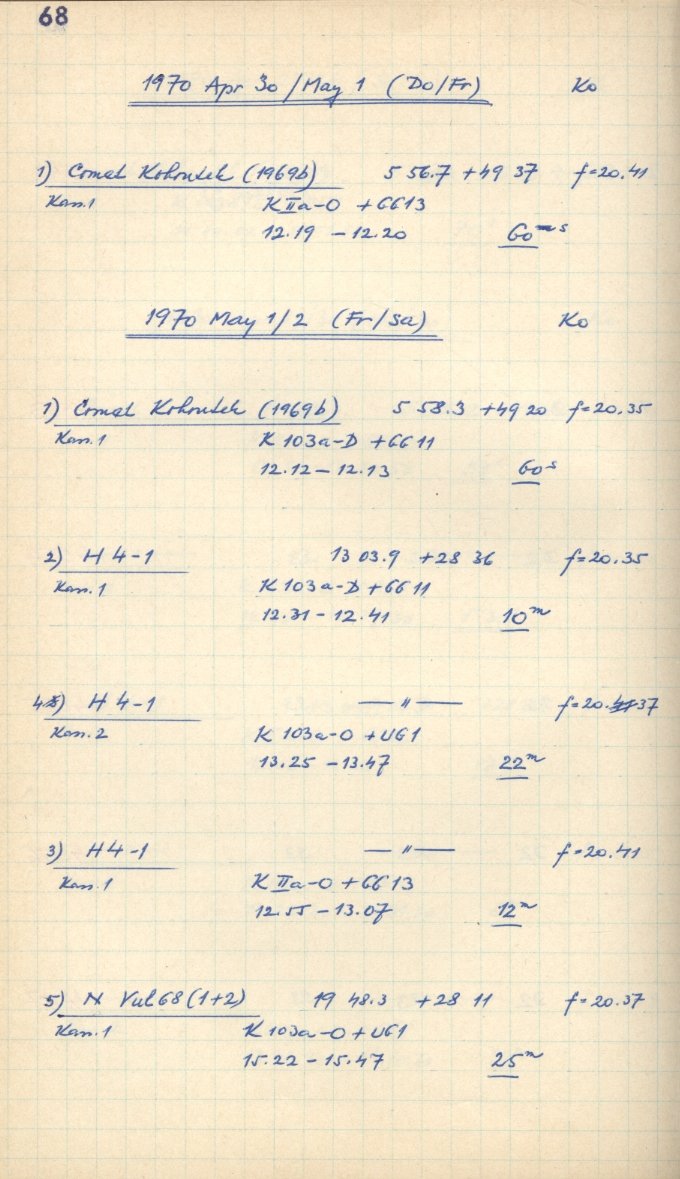 68
1970 Apr 30/May 1 (Do/Fr) Ko
1) Comet Kohoutek (1969b) 5 56.7 +49 37 f=20.41
Kas.1 K IIa-O +GG13
12.19 – 12.20 60 s
1970 May 1/2 (Fr/Sa) Ko
1) Comet Kohoutek (1969b) 5 58.3 +49 20 f=20.35
Kas.1 K 103a-D +GG11
12.12 – 12.13 60 s
2) H 4-1 13 03.9 +28 36 f=20.35
Kas.1 K 103a-D +GG11
12.31 – 12.41 10 m
4) H 4-1 — " — f=20.37
Kas.2 K 103a-O +UG1
13.25 – 13.47 22 m
3) H 4-1 — " — f=20.41
Kas.1 K IIa-O +GG13
12.55 – 13.07 12 m
5) N Vul 68 (1+2) 19 48.3 +28 11 f=20.37
Kas.1 K 103a-O +UG1
15.22 – 15.47 25 m